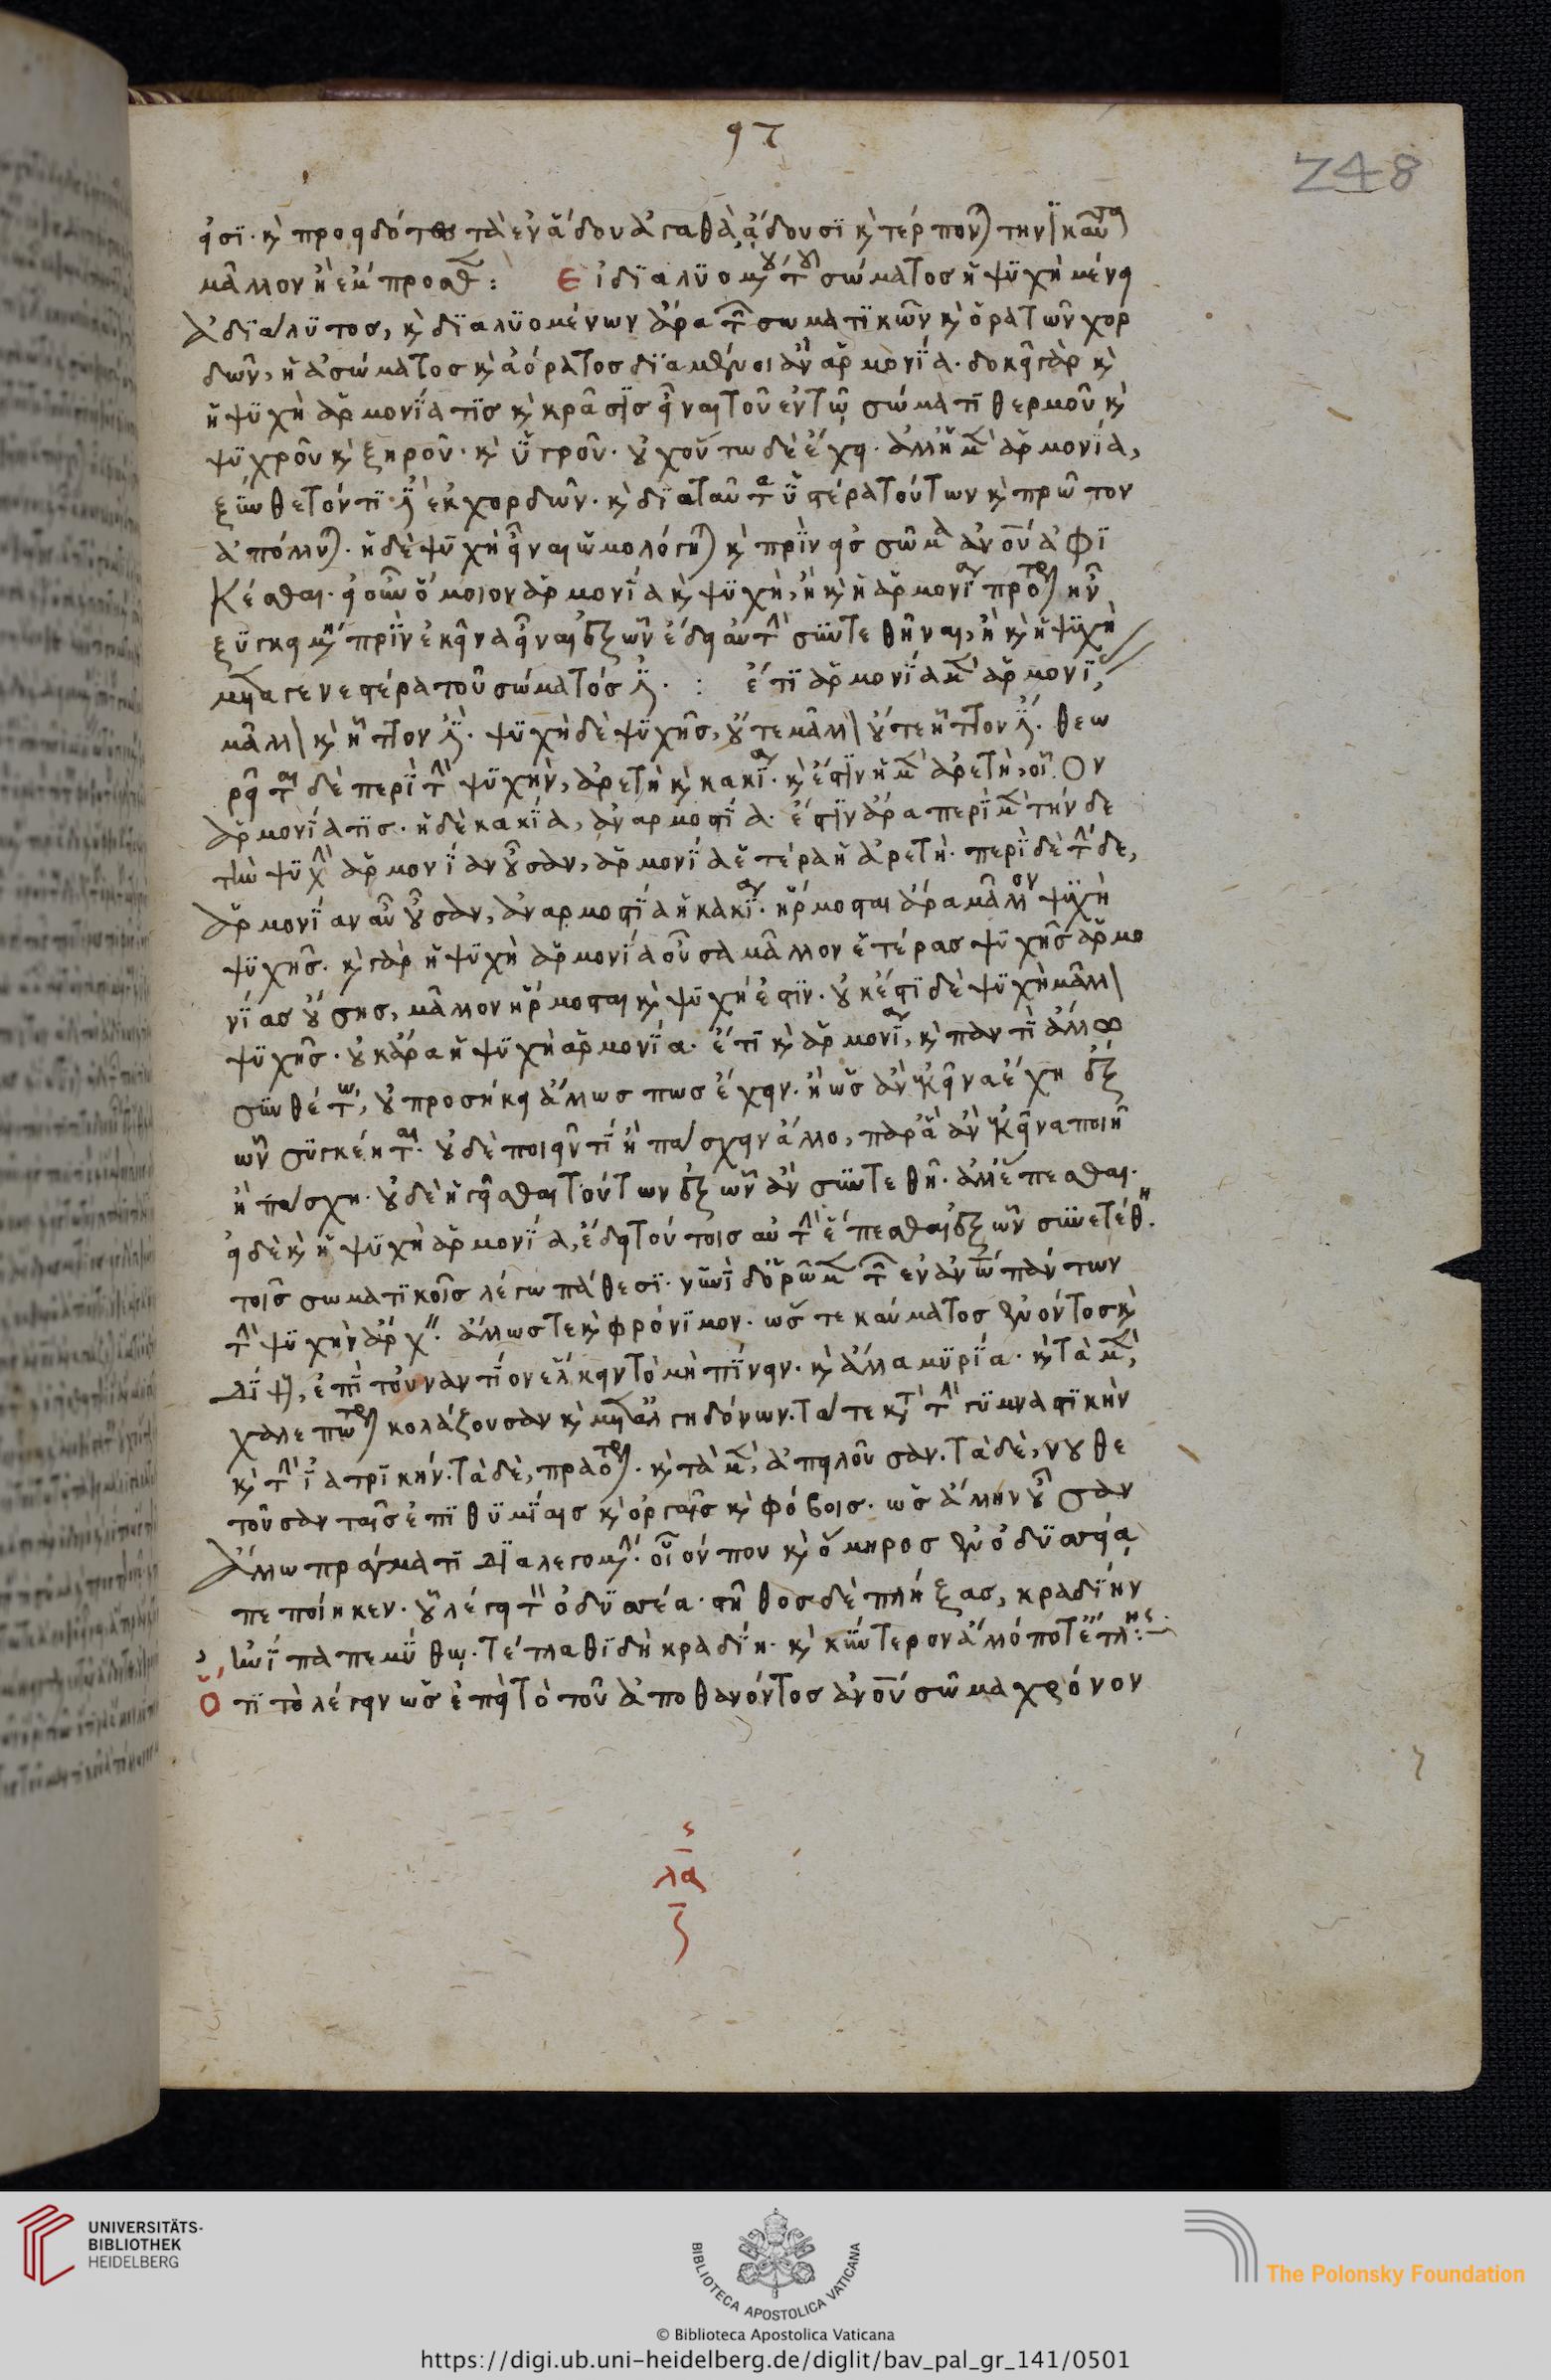 97
248
εἰσί· καὶ προειδότες τὰ ἐν ἅδου ἀγαθὰ, ᾄδουσι καὶ τέρπονται τὴν ἡμέραν ταύτην
μᾶλλον ἢ ἐν τῷ πρόσθεν: Εἰ διαλυομένου τοῦ σώματος ἡ ψυχὴ μένει
ἀδιάλυτος, καὶ διαλυομένων ἄρα τῶν σωματικῶν καὶ ὁρατῶν χορ
δῶν, ἡ ἀσώματος καὶ ἀόρατος διαμένοι ἂν ἁρμονία. δοκεῖ γὰρ καὶ
ἡ ψυχὴ ἁρμονία τις καὶ κρᾶσις εἶναι τοῦ ἐν τῷ σώματι θερμοῦ καὶ
ψυχροῦ καὶ ξηροῦ· καὶ ὑγροῦ. οὐχ οὕτω δὲ ἔχει. ἀλλ' ἡ μὲν ἁρμονία,
ξύνθετόν τί ἐστιν ἐκ χορδῶν. καὶ διὰ ταῦτα ὑστέρα τούτων καὶ πρῶτον
ἀπόλλυται. ἡ δὲ ψυχὴ εἶναι ὡμολόγηται καὶ πρὶν εἰς σῶμα ἀνου ἀφι
κέσθαι. εἰ οὖν ὅμοιον ἁρμονία καὶ ψυχὴ, ἢ καὶ ἡ ἁρμονία πρότερον ἦν
ξυγκειμένη πρὶν ἐκεῖνα εἶναι ἐξ ὧν ἔδει αὐτὴν συντεθῆναι, ἢ καὶ ἡ ψυχὴ
μεταγενεστέρα τοῦ σώματός ἐστιν. : ἔτι ἁρμονία μὲν ἁρμονίας
μᾶλλον καὶ ἧττον ἐστί. ψυχὴ δὲ ψυχῆς, οὔτε μᾶλλον οὔτε ἧττον ἐστί. θεω
ρεῖται δὲ περὶ τὴν ψυχὴν, ἀρετὴ καὶ κακία. καὶ ἔστιν ἡ μὲν ἀρετὴ, οἷον
ἁρμονία τις. ἡ δὲ κακία, ἀναρμοστία. ἔστιν ἄρα περὶ μὲν τήνδε
τὴν ψυχὴν ἁρμονίαν οὖσαν, ἁρμονία ἑτέρα ἡ ἀρετή. περὶ δὲ τήνδε,
ἁρμονίαν αὖ οὖσαν, ἀναρμοστία ἡ κακία. ἥρμοσται ἄρα μᾶλλον ψυχὴ
ψυχῆς. καὶ γὰρ ἡ ψυχὴ ἁρμονία οὖσα μᾶλλον ἑτέρας ψυχῆς ἁρμο
νίας οὔσης, μᾶλλον ἥρμοσται καὶ ψυχή ἐστιν. οὐκ ἔστι δὲ ψυχὴ μᾶλλον
ψυχῆς. οὐκ ἄρα ἡ ψυχὴ ἁρμονία. ἔτι καὶ ἁρμονία, καὶ παντὶ ἄλλῳ
συνθέτῳ, οὐ προσήκει ἄλλως πως ἔχειν. ἢ ὡς ἂν κἀκεῖνα ἔχῃ ἐξ
ὧν σύγκειται. οὐδὲ ποιεῖν τὶ ἢ πάσχειν ἄλλο, παρ' ἃ ἂν κἀκεῖνα ποιῆ
ἢ πάσχη. οὐδὲ ἡγεῖσθαι τούτων ἐξ ὧν ἂν συντεθῆ. ἀλλ' ἕπεσθαι.
εἰ δὲ καὶ ἡ ψυχὴ ἁρμονία, ἔδει τούτοις αὐτὴν ἕπεσθαι ἐξ ὧν συνετέθη.
τοῖς σωματικοῖς λέγω πάθεσι. νυνὶ δ' ὁρῶμεν τῶν ἐν ἀνω πάντων
τὴν ψυχὴν ἄρχειν. ἄλλως τε καὶ φρόνιμον. ὥστε καύματος ἐνόντος καὶ
δίψης, ἐπὶ τοὐναντίον ἕλκειν τὸ μὴ πίνειν. καὶ ἄλλα μυρία. καὶ τὰ μὲν,
χαλεπώτερον κολάζουσαν καὶ μετ' ἀλγηδόνων. τά τε κατὰ τὴν γυμναστικὴν
καὶ τὴν ἰατρικήν. τὰ δὲ, πραότερον. καὶ τὰ μὲν, ἀπειλοῦσαν. τὰ δὲ, νουθε
τοῦσαν ταῖς ἐπιθυμίαις καὶ ὀργαῖς καὶ φόβοις. ὡς ἄλλην οὖσαν
ἄλλω πράγματι διαλεγομένην. οἷόν που καὶ ὅμηρος ἐν ὀδυσσεία
πεποίηκεν. οὗ λέγει τὸν ὀδυσσέα. στῆθος δὲ πλήξας, κραδίην
ἠνίπαπε μύθω. τέτλαθι δὴ κραδίη. καὶ κύντερον ἄλλό ποτ' ἔτλης:
Ὅτι τὸ λέγειν ὡς ἐπεὶ τὸ τοῦ ἀποθανόντος ἀνου σῶμα χρόνον
UNIVERSITÄTS-
BIBLIOTHEK
HEIDELBERG
BIBLIOTECA APOSTOLICA VATICANA
The Polonsky Foundation
© Biblioteca Apostolica Vaticana
https://digi.ub.uni-heidelberg.de/diglit/bav_pal_gr_141/0501